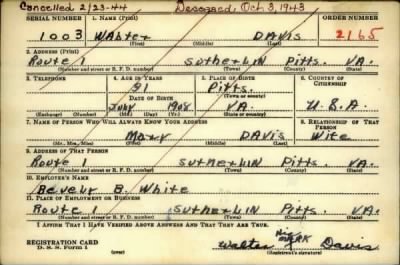 Cancelled 2/23-44 Deceased, Oct 3, 1943
SERIAL NUMBER 1. NAME (Print) ORDER NUMBER
1003 Walter DAVIS 2165
(First) (Middle) (Last)
2. ADDRESS (Print)
Route 1 Sutherlin Pitts. VA.
(Number and street or R. F. D. number) (Town) (County) (State)
3. TELEPHONE 4. AGE IN YEARS 5. PLACE OF BIRTH 6. COUNTRY OF CITIZENSHIP
Pitts.
DATE OF BIRTH (Town or county)
July 1908 VA. U.S.A.
(Exchange) (Number) (Mo.) (Day) (Yr.) (State or country)
7. NAME OF PERSON WHO WILL ALWAYS KNOW YOUR ADDRESS 8. RELATIONSHIP OF THAT PERSON
Mary DAVIS Wife
(Mr., Mrs., Miss) (First) (Middle) (Last)
9. ADDRESS OF THAT PERSON
Route 1 Sutherlin Pitts. VA.
(Number and street or R. F. D. number) (Town) (County) (State)
10. EMPLOYER'S NAME
B. White
11. PLACE OF EMPLOYMENT OR BUSINESS
Route 1 Sutherlin Pitts VA.
(Number and street or R. F. D. number) (Town) (County) (State)
I AFFIRM THAT I HAVE VERIFIED ABOVE ANSWERS AND THAT THEY ARE TRUE.
REGISTRATION CARD
D. S. S. Form 1 (over) Walter his X mark Davis
(Registrant's signature)